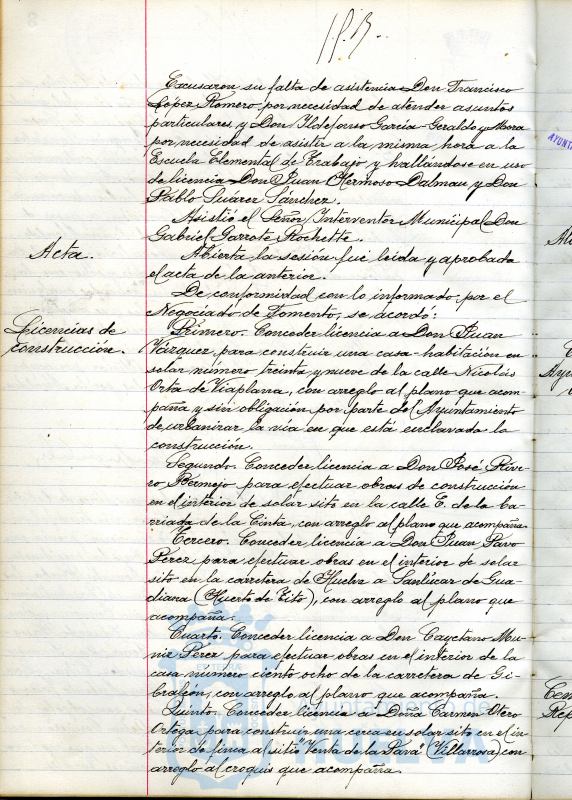 Excusaron su falta de asistencia Don Francisco
López Romero por necesidad de atender asuntos
particulares y Don Ildefonso García-Geraldo y Mora
por necesidad de asistir a la misma hora a la
Escuela Elemental de Trabajo, y hallándose en uso
de licencia Don Juan Hermoso Dalmau y Don
Pablo Suárez Sánchez.
Asistió el Señor Interventor Municipal Don
Gabriel Garrote Rochette.
Acta.
Abierta la sesión fué leida y aprobada
el acta de la anterior.
De conformidad con lo informado por el
Negociado de Fomento, se acordó:
Licencias de
construcción.
Primero. Conceder licencia a Don Juan
Vázquez para construir una casa-habitación en
solar número treinta y nueve de la calle Nicolás
Orta de Viaplana, con arreglo al plano que acom-
paña y sin obligación por parte del Ayuntamiento
de urbanizar la vía en que está enclavada la
construcción.
Segundo. Conceder licencia a Don José Rive-
ro Bermejo para efectuar obras de construcción
en el interior de solar sito en la calle E. de la ba-
rriada de la Cinta, con arreglo al plano que acompaña.
Tercero. Conceder licencia a Don Juan Pavo
Pérez para efectuar obras en el interior de solar
sito en la carretera de Huelva a Sanlúcar de Gua-
diana (Huerto de Tito), con arreglo al plano que
acompaña.
Cuarto. Conceder licencia a Don Cayetano Mu-
niz Pérez para efectuar obras en el interior de la
casa número ciento ocho de la carretera de Gi-
braleón, con arreglo al plano que acompaña.
Quinto. Conceder licencia a Doña Carmen Otero
Ortega para construir una cerca en solar sito en el in-
terior de finca al sitio "Venta de la Pava" (Villarrosa) con
arreglo al croquis que acompaña.
Ayuntamiento de
HUELVA